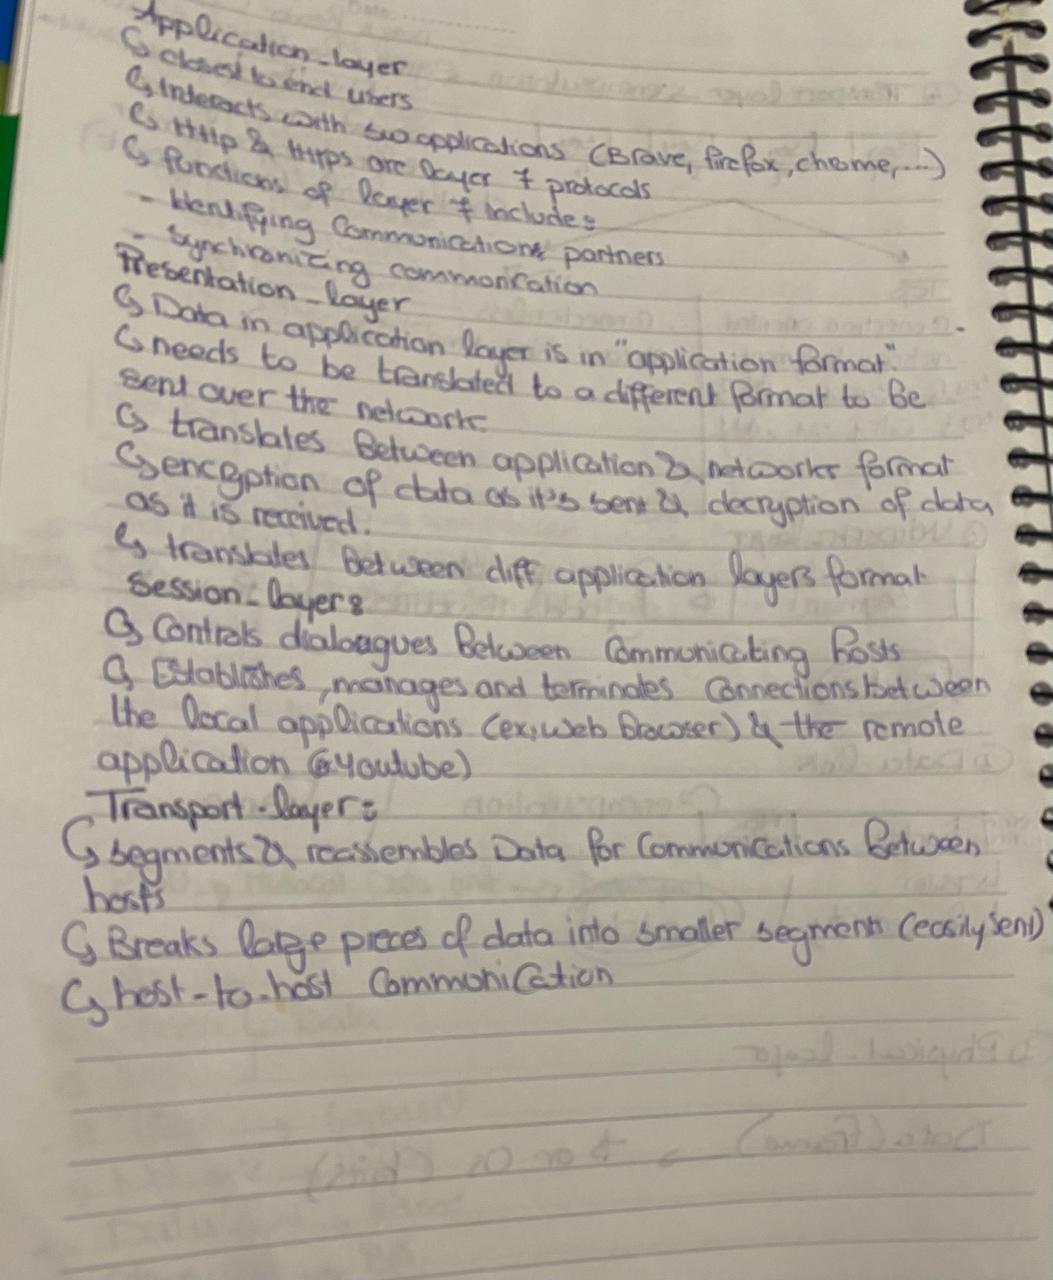 Application-layer
↳ closest to end users
↳ Interacts with swo applications (Brave, firefox, chrome, ...)
↳ Http & https are layer 7 protocols
↳ functions of layer 7 include:
- Identifying Communications partners
- synchronizing communication
Presentation-layer
↳ Data in application layer is in "application format".
↳ needs to be translated to a different format to be
sent over the network.
↳ translates Between application & networks format
↳ encryption of data as it's sent & decryption of data
as it is received.
↳ translates Between diff application layers format
Session-layer:
↳ Controls dialoagues Between Communicating hosts
↳ Establishes, manages and terminates Connections between
the local applications (ex, web browser) & the remote
application (@youtube)
Transport-layer:
↳ segments & reassembles Data for Communications Between
hosts
↳ Breaks large pieces of data into smaller segments (easily sent)
↳ host-to-host Communication